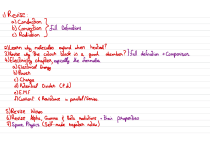 1) Revise:
a) Conduction
b) Convection } full Definitions
c) Radiation
2) Learn why molecules expand when heated?
3) Revise why the colour black is a good absorber? } full definition + Comparison
4) Electricity chapter, especially the formulas
a) Electrical Energy
b) Power
c) Charge
d) Potential Difference (P.d)
e) E.M.F
f) Current & Resistance in parallel/Series
5) Revise Waves
6) Revise Alpha, Gamma & Beta radiations + their properties
7) Space Physics (Self-made together notes)